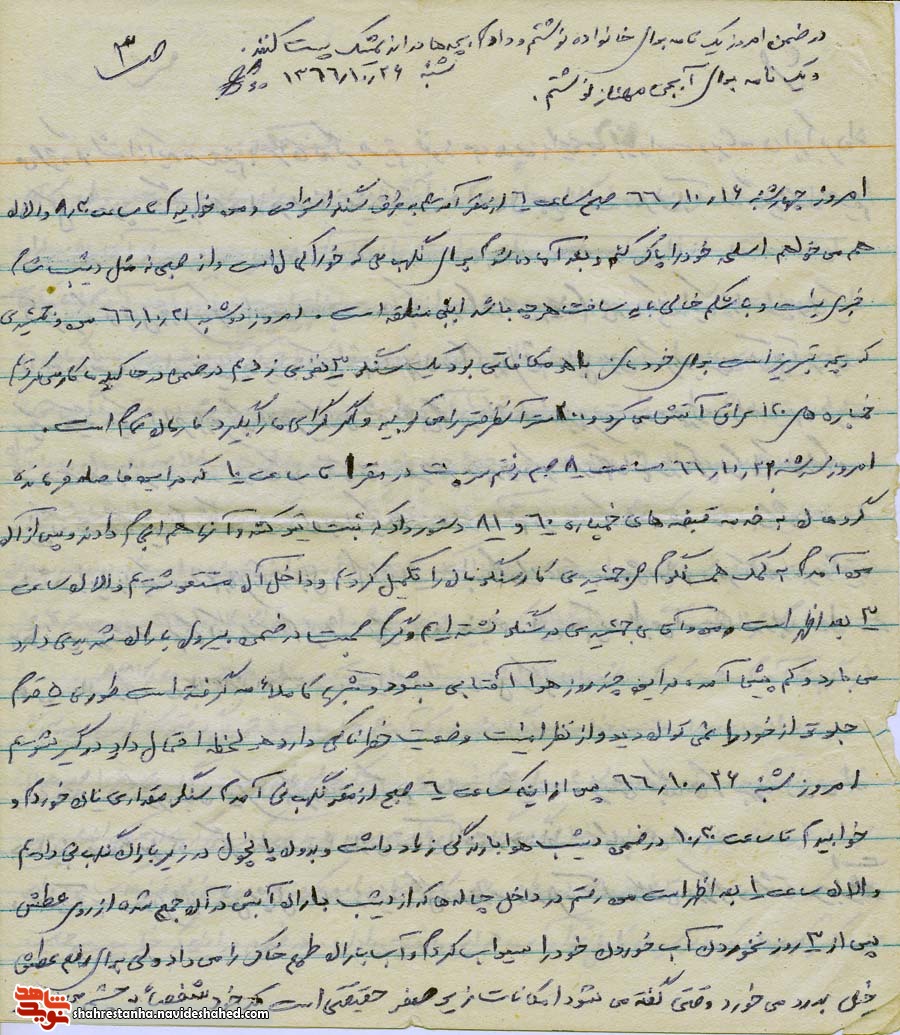 در ضمن امروز یک نامه برای خانواده نوشتم و دادم بچه‌ها در اندیمشک پست کنند.
ص ۳
و یک نامه برای آبجی مهناز نوشتم.
شنبه ۱۳۶۶/۱۰/۲۶
امروز چهارشنبه ۶۶/۱۰/۱۶ صبح ساعت ۶ از مقر آمدم به طرف سنگر استراحت و من خوابیدم تا ساعت ۸/۳۰ والان
هم می‌خواهم اسلحه خود را پاک کنم و بعد آماده شوم برای نگهبانی که خوراکی
خبری نیست و با شکم خالی باید ساخت هرچه باشد اینجا منطقه است. امروز دوشنبه ۶۶/۱۰/۲۱ من و جمشیدی
که بچه تبریز است برای خودمان با هر مکافاتی بود یک سنگر ۳ نفری زدیم در ضمن در حالیکه ما کار می‌کردیم
خمپاره‌های ۱۲۰ عراق آتش می‌کرد و ۲۰۰ متر آنطرفتر را می‌کوبید و اگر گرای ما را بگیرد کارمان تمام است.
امروز سه‌شنبه ۶۶/۱۰/۲۲ ساعت ۸ صبح رفتم سر پست در مقر تا ساعت ۱۰ که در این فاصله فرمانده
گردان به خدمه قبضه‌های خمپاره ۶۰ و ۸۱ دستور داد که ثبت تیر کنند و آنها هم انجام دادند و پس از آن
من آمدم به کمک همسنگرم جمشیدی کار سنگرمان را تکمیل کردیم و داخل آن مستقر شدیم والان ساعت
۳ بعد از ظهر است و من و آقای جمشیدی در سنگر نشسته‌ایم و گرم صحبت در ضمن بیرون باران شدیدی دارد
می‌بارد و کم پیش آمده در این چند روز هوا آفتابی بشود و شبها کاملاً مه گرفته است طوری ۵ قدم
جلوتر از خود را نمی‌توان دید و از نظر امنیت وضعیت خطرناکی دارد هر لحظه احتمال دارد درگیر شویم
امروز شنبه ۶۶/۱۰/۲۶ پس از اینکه ساعت ۶ صبح از مقر نگهبانی آمدم سنگر مقداری نان خوردم و
خوابیدم تا ساعت ۱۰/۳۰ در ضمن دیشب هوا بارندگی زیاد داشت و بدون پانچول در زیر باران نگهبانی دادیم
والان ساعت ۱ بعد از ظهر است من رفتم در داخل چاله‌ها که از دیشب باران آبش در آن جمع شده از روی عطش
پس از ۳ روز نخوردن آب خوردن خود را سیراب کردم و آب باران طعم خاک را می‌داد ولی برای رفع عطش
خیلی بدرد می‌خورد وقتی گفته می‌شود امکانات زیر صفر حقیقتی است که خود شخصاً به چشم
شاهد
shahrestanha.navideshahed.com